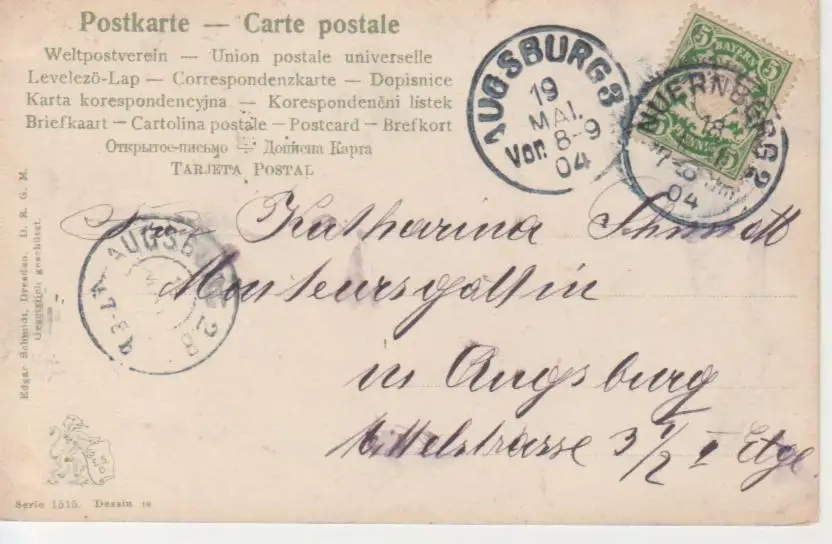 Postkarte — Carte postale
Weltpostverein — Union postale universelle
Levelező-Lap — Correspondenzkarte — Dopisnice
Karta korespondencyjna — Korespondenční lístek
Briefkaart — Cartolina postale — Postcard — Brefkort
Открытое-письмо — Дописна Карта
TARJETA POSTAL
AUGSBURG 3
19
MAI.
Vor. 8-9
04
5 BAYERN 5
NUERNBERG 2
18
04
Katharina Schmidt
Monteursgattin
in Augsburg
Mittelstrasse 3 1/2 I Etge
AUGSB
Edgar Schmidt, Dresden. D. R. G. M.
Gesetzlich geschützt.
Serie 1515. Dessin 18